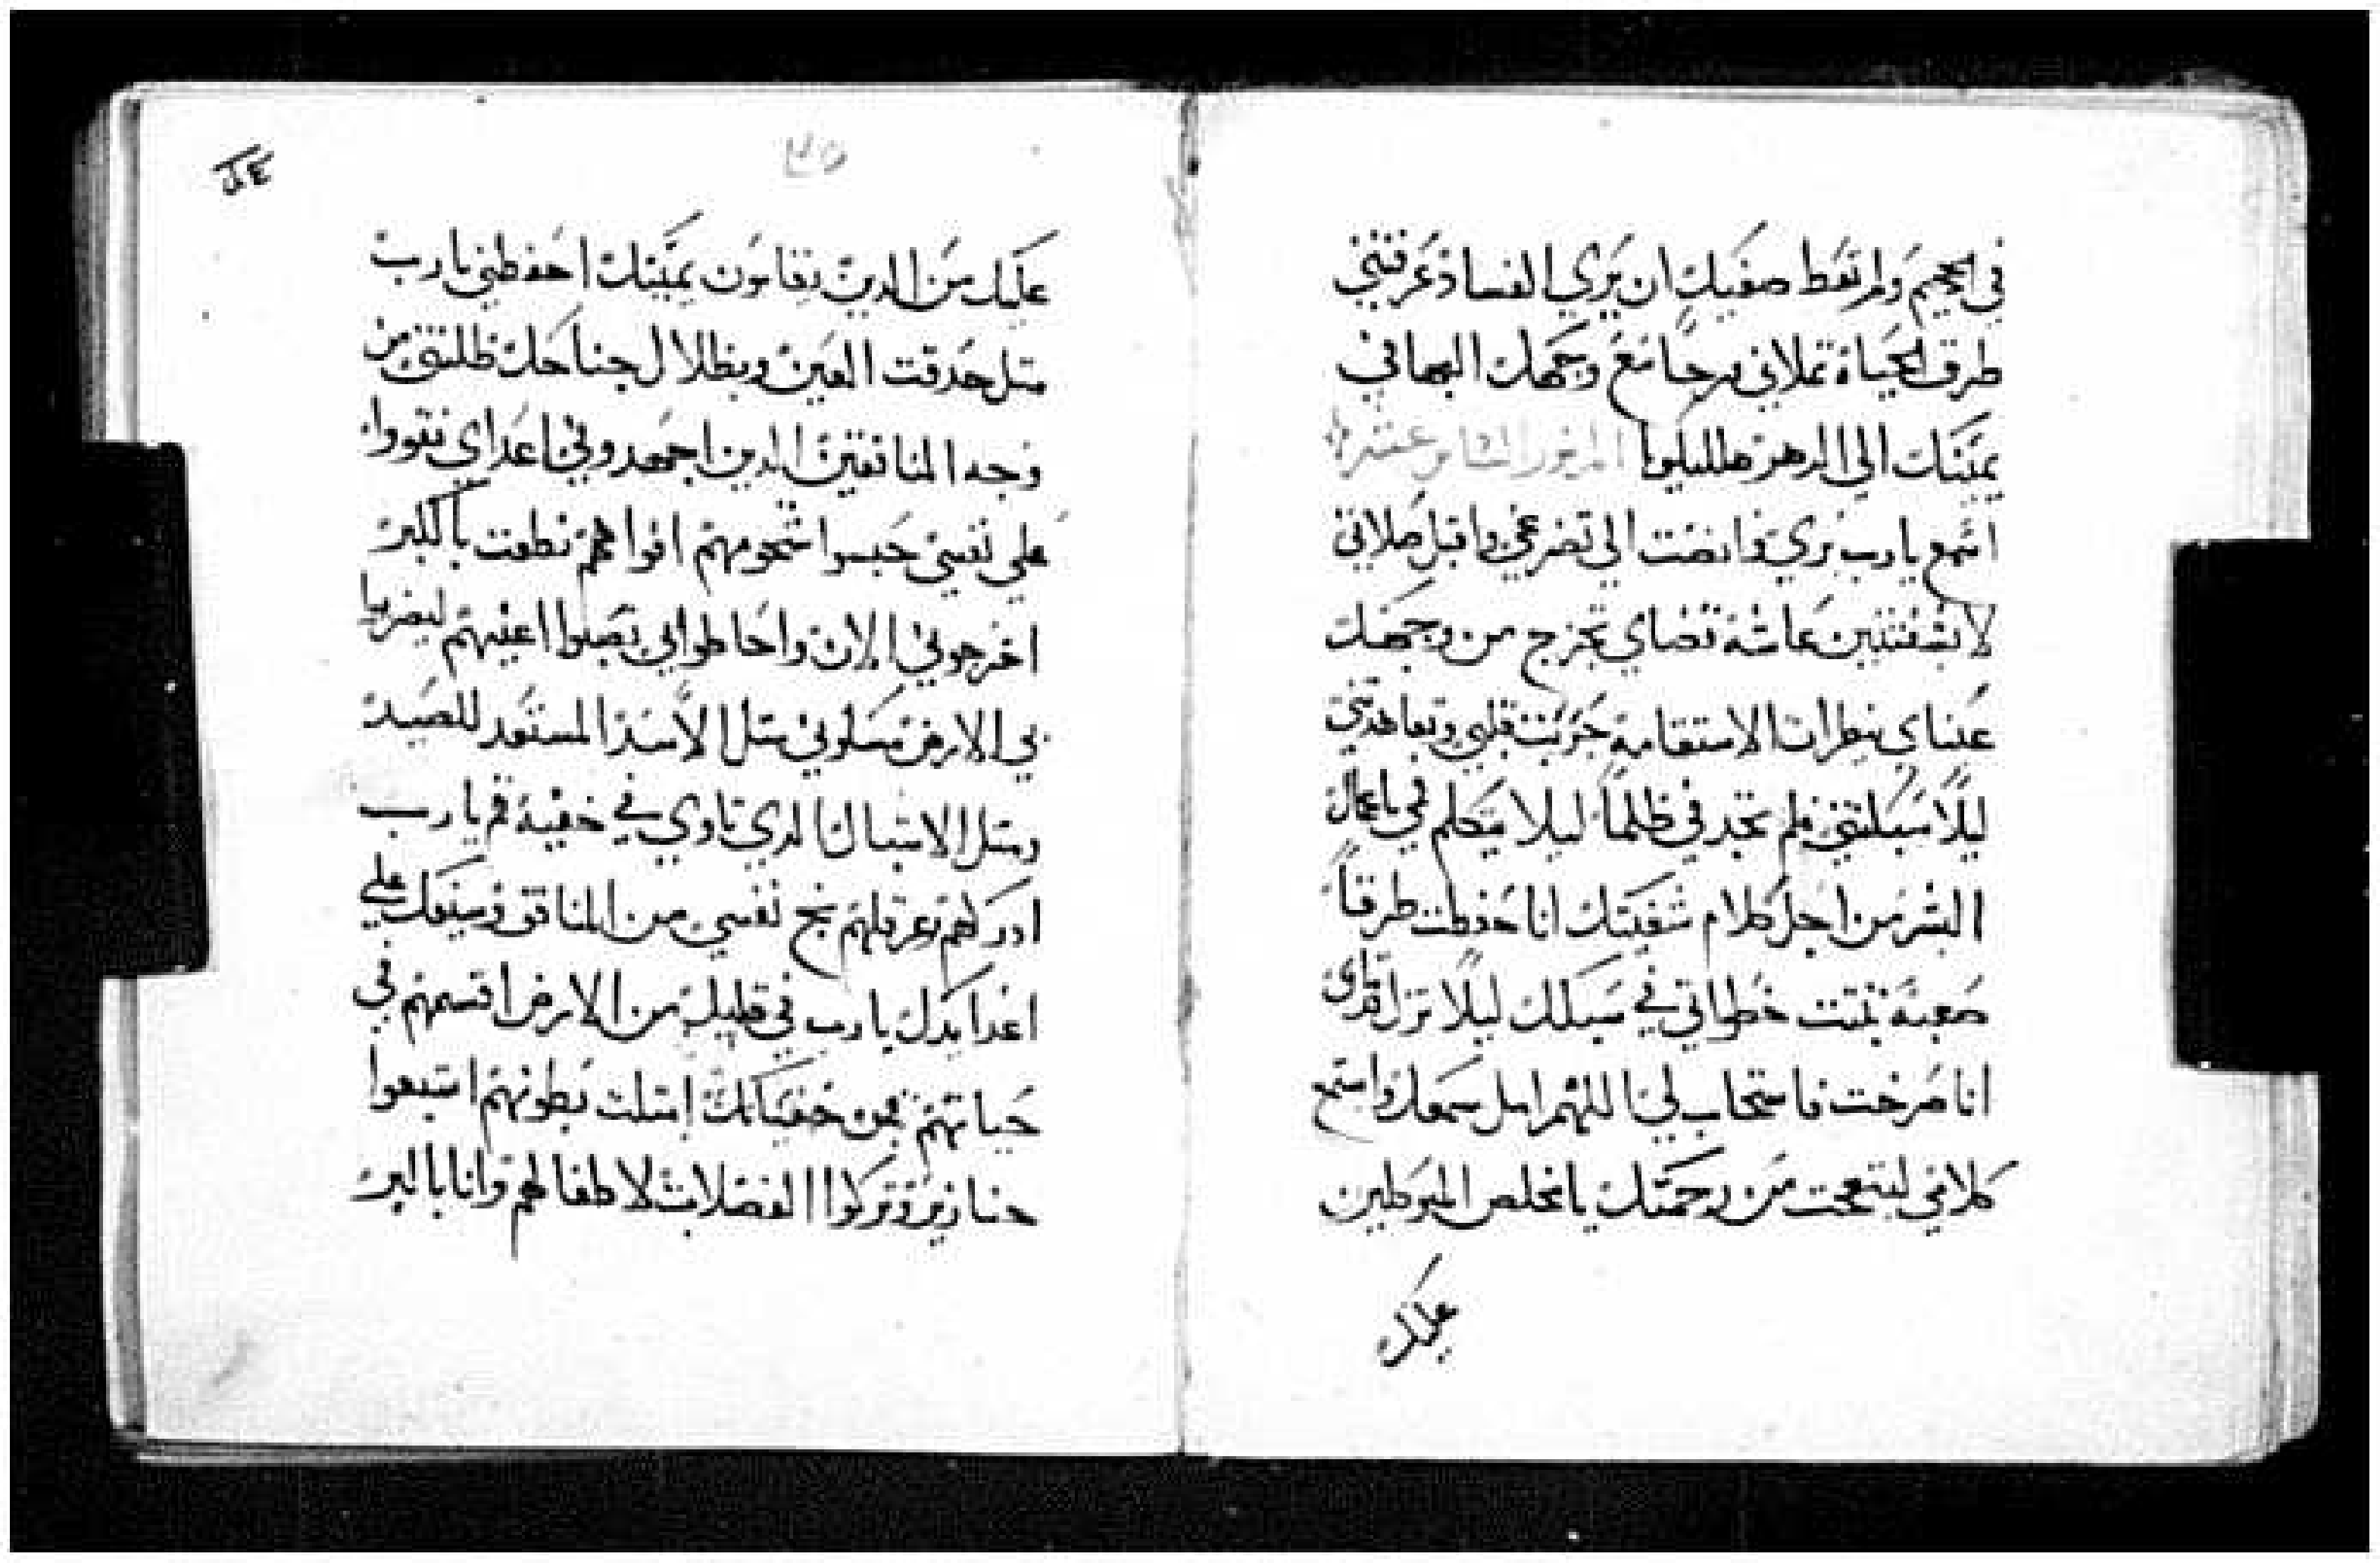 في الجحيم ولم تعط صفيك ان يري الفساد عرفتني
طرق الحياة تملاني فرحا مع وجهك البهافي
يمينك الي الدهر هلليلويا المزمور السادس عشر
اسمع يارب بري فانصت الي تضرعي واقبل صلاتي
لا بشفتين غاشة قضاي يخرج من وجهك
عيناي ينظران الاستقامة جربت قلبي وتعاهدتني
ليلا سبكتني فلم تجد في ظلما ليلا يتكلم فمي باعمال
البشر من اجل كلام شفتيك انا حفظت طرقا
صعبة ثبتت خطواتي في سبلك ليلا تزل قدماي
انا صرخت فاستجاب لي اللهم امل سمعك واستمع
كلامي ليتعجب من رحمتك يا مخلص المتوكلين
عليك
٣٥
عليك من الدين يقاومون يمينك احفظني يارب
متل حدقت العين وبظلال جناحك ظللتني من
وجه المنافقين الدين اجهدوني اعداي
علي نفسي حبسوا شحومهم افواههم نطقت بالكبر
اخرجوني الان واحاطوا بي نصبوا اعينهم ليضربوا
بي الارض متل الاسد المستعد للصيد
ومتل الاشبال الدي تاوي في خفية قم يارب
ادركهم وعرقلهم نج نفسي من المنافق وسيفك علي
اعدا يدك يارب في قليلة من الارض اقسمهم في
حياتهم من خفياتك امتلت بطونهم اشبعوا
خنازير وتركوا الفضلات لاطفالهم وانا بالبر